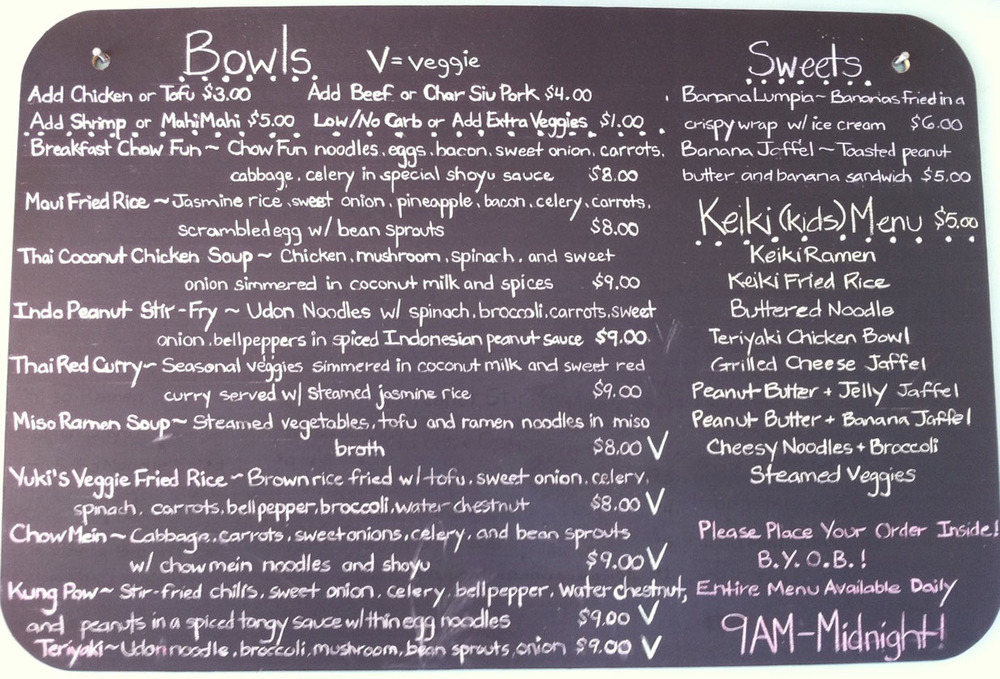 Bowls V=veggie
Add Chicken or Tofu $3.00 Add Beef or Char Siu Pork $4.00
Add Shrimp or MahiMahi $5.00 Low/No Carb or Add Extra Veggies $1.00
Breakfast Chow Fun ~ Chow Fun noodles, eggs, bacon, sweet onion, carrots,
cabbage, celery in special shoyu sauce $8.00
Maui Fried Rice ~ Jasmine rice, sweet onion, pineapple, bacon, celery, carrots,
scrambled egg w/ bean sprouts $8.00
Thai Coconut Chicken Soup ~ Chicken, mushroom, spinach, and sweet
onion simmered in coconut milk and spices $9.00
Indo Peanut Stir-Fry ~ Udon Noodles w/ spinach, broccoli, carrots, sweet
onion, bell peppers in spiced Indonesian peanut sauce $9.00
Thai Red Curry ~ Seasonal veggies simmered in coconut milk and sweet red
curry served w/ steamed jasmine rice $9.00
Miso Ramen Soup ~ Steamed vegetables, tofu and ramen noodles in miso
broth $8.00 V
Yuki's Veggie Fried Rice ~ Brown rice fried w/ tofu, sweet onion, celery,
spinach, carrots, bell pepper, broccoli, water chestnut $8.00 V
Chow Mein ~ Cabbage, carrots, sweet onions, celery, and bean sprouts
w/ chow mein noodles and shoyu $9.00 V
Kung Pow ~ Stir-fried chili's, sweet onion, celery, bell pepper, water chestnut,
and peanuts in a spiced tangy sauce w/ thin egg noodles $9.00 V
Teriyaki ~ Udon noodle, broccoli, mushroom, bean sprouts, onion $9.00 V
Sweets
Banana Lumpia ~ Bananas fried in a
crispy wrap w/ ice cream $6.00
Banana Jaffel ~ Toasted peanut
butter and banana sandwich $5.00
Keiki (kids) Menu $5.00
Keiki Ramen
Keiki Fried Rice
Buttered Noodle
Teriyaki Chicken Bowl
Grilled Cheese Jaffel
Peanut Butter + Jelly Jaffel
Peanut Butter + Banana Jaffel
Cheesy Noodles + Broccoli
Steamed Veggies
Please Place Your Order Inside!
B.Y.O.B.!
Entire Menu Available Daily
9AM-Midnight!